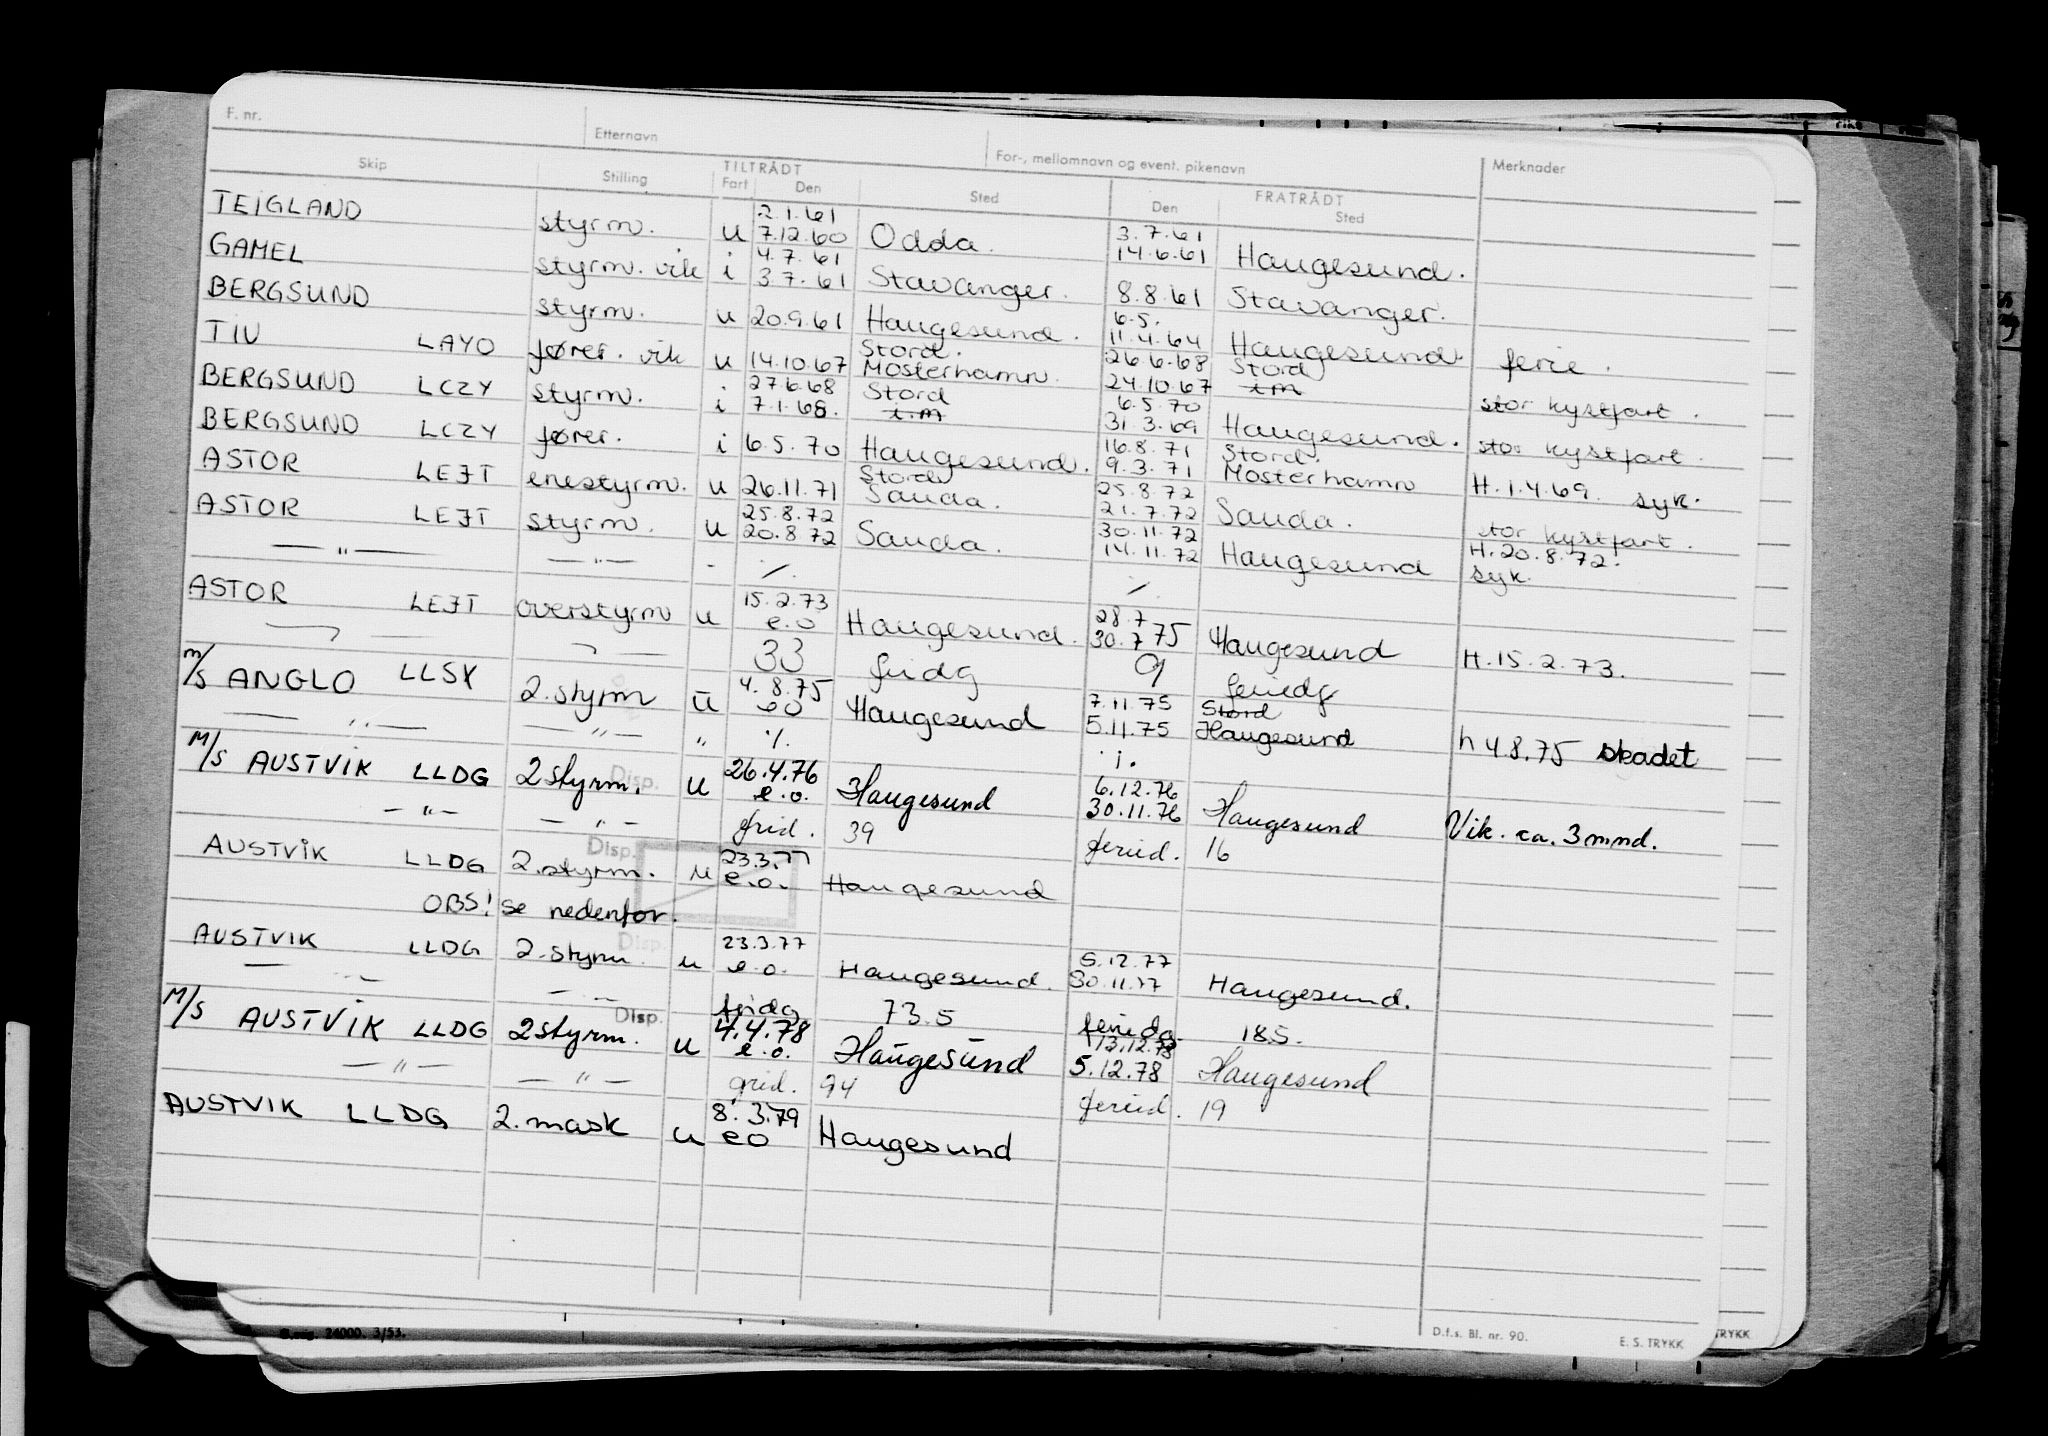 F. nr. Etternavn For-, mellomnavn og event. pikenavn Merknader
Skip Stilling TILTRÅDT Fart Den Sted FRATRÅDT Den Sted
2.1.61 3.7.61
TEIGLAND styrm. u 7.12.60 Odda. 14.6.61 Haugesund.
4.7.61
GAMEL styrm. vik i 3.7.61 Stavanger. 8.8.61 Stavanger.
6.5.
BERGSUND styrm. u 20.9.61 Haugesund. 11.4.64 Haugesund. ferie.
Stord. 26.6.68 Stord
TIU LAYO fører. vik u 14.10.67 Mosterhamn. 24.10.67 i.m stor kystfart.
27.6.68 Stord 6.5.70
BERGSUND LCZY styrm. i 7.1.68. i.m 31.3.69 Haugesund. stor kystfart.
16.8.71 Stord.
BERGSUND LCZY fører. i 6.5.70 Haugesund. 9.3.71 Mosterhamn H.1.4.69. syk.
Stord 25.8.72
ASTOR LEJT enestyrm. u 26.11.71 Sauda. 21.7.72 Sauda. stor kystfart.
25.8.72 30.11.72 H.20.8.72.
ASTOR LEJT styrm. u 20.8.72 Sauda. 14.11.72 Haugesund syk.
— " — — " — - ./. ./.
15.2.73 28.7
ASTOR LEJT overstyrm u e.o Haugesund. 30.7 75 Haugesund H.15.2.73.
33 fridg 9 feriedg
4.8.75 7.11.75 Stord
M/S ANGLO LLSX 2.styrm u eo Haugesund 5.11.75 Haugesund h 4.8.75 skadet
— " — — " — " ./. ./.
Disp. 26.4.76 6.12.76
M/S AUSTVIK LLDG 2 styrm. u e.o. Haugesund 30.11.76 Haugesund Vik. ca. 3 mnd.
— " — — " — frid. 39 feried. 16
Disp. 23.3.77
AUSTVIK LLDG 2.styrm. u e.o. Haugesund
OBS! se nedenfor.
Disp. 23.3.77 5.12.77
AUSTVIK LLDG 2.styrm. u e.o. Haugesund. 30.11.77 Haugesund.
— " — — " — fridg 73.5 feriedg 18.5.
Disp. 4.4.78 13.12.78
M/S AUSTVIK LLDG 2 styrm. u e.o. Haugesund 5.12.78 Haugesund
— " — — " — frid. 94 feried. 19
8.3.79
AUSTVIK LLDG 2.mask u eo Haugesund
D.f.s. Bl. nr. 90. E. S. TRYKK TRYKK
24000. 3/53.